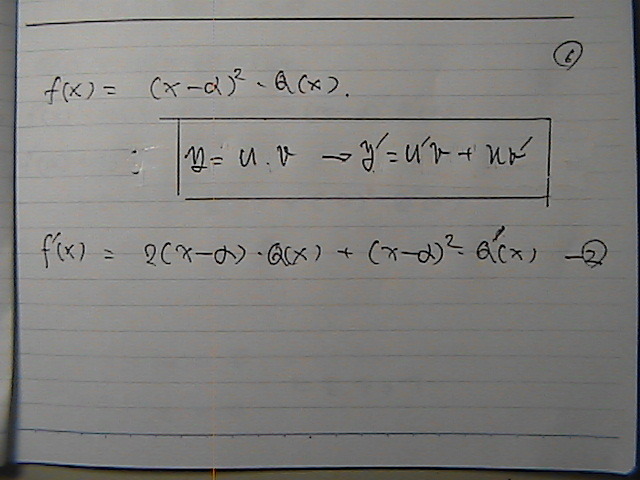 ⑥
f(x) = (x-α)² · Q(x).
y = u · v → y' = u'v + uv'
f'(x) = 2(x-α) · Q(x) + (x-α)² · Q'(x) -②